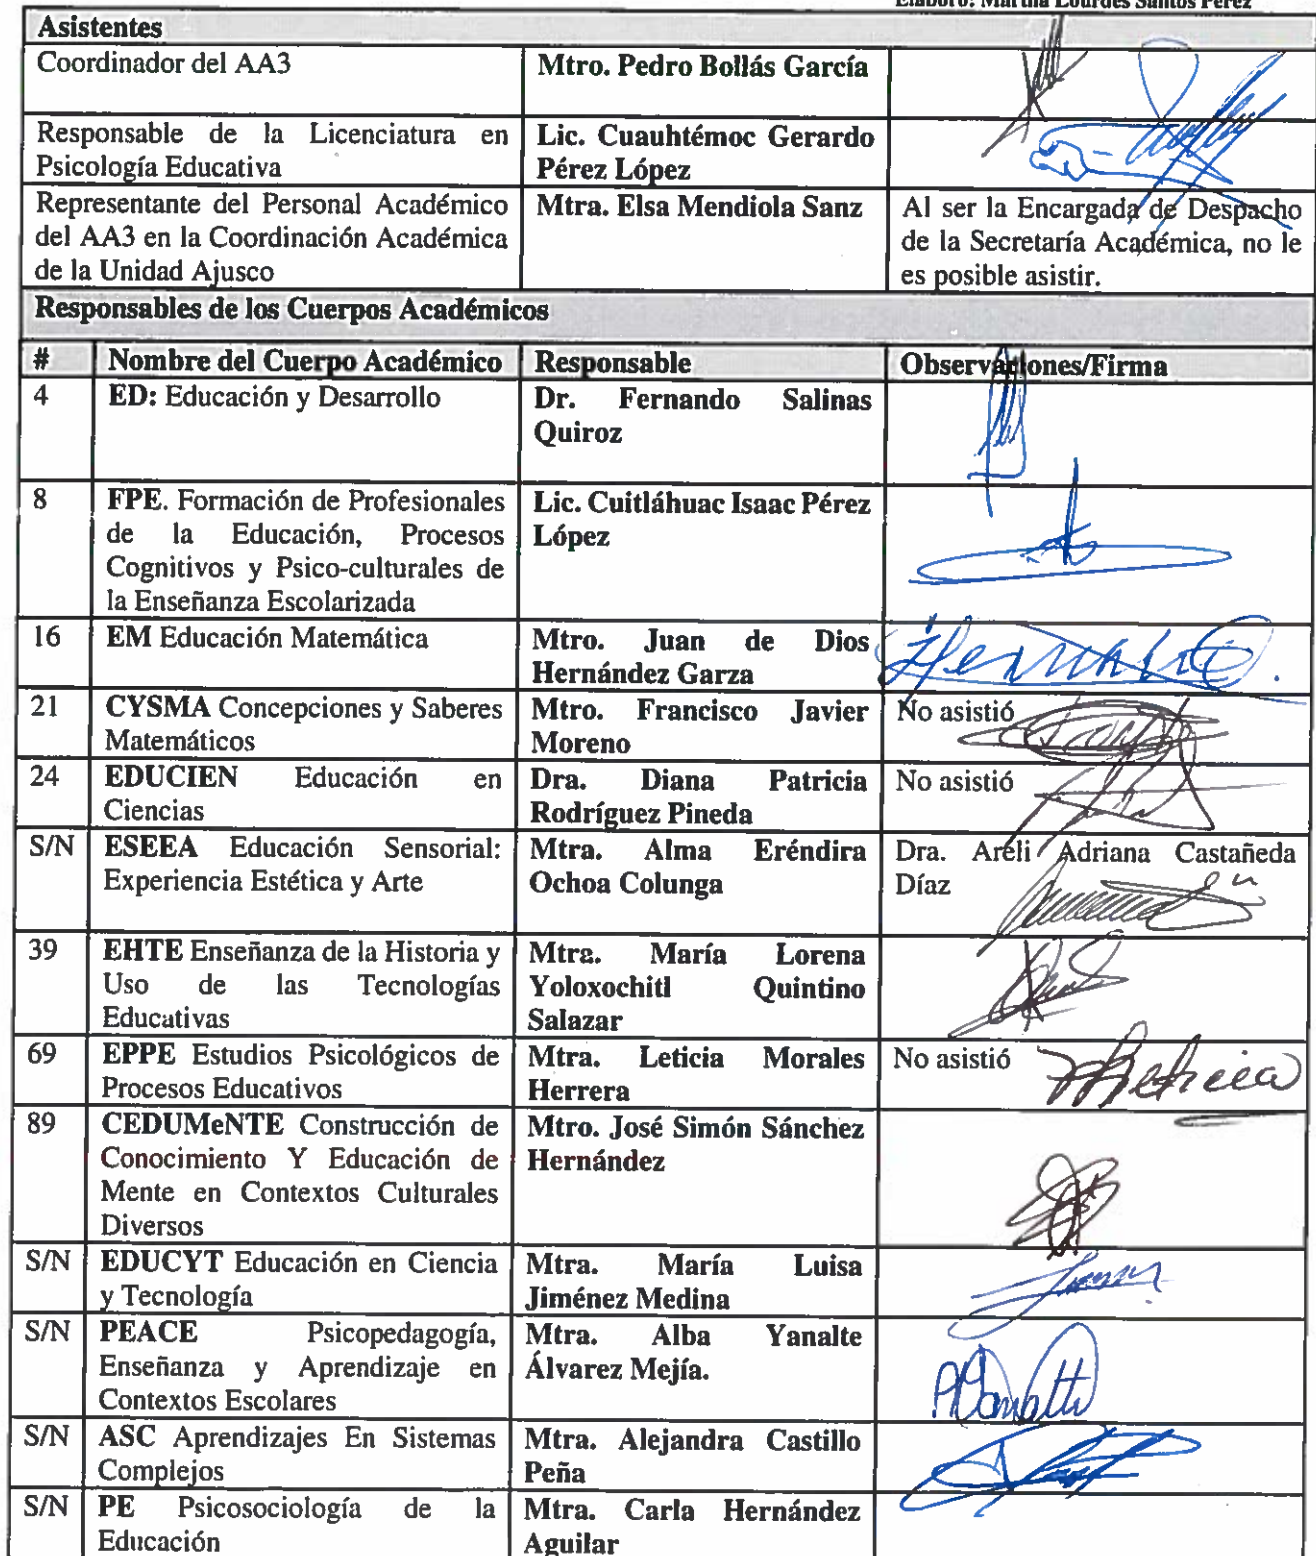 Elaboró: Martha Lourdes Santos Pérez
Asistentes
Coordinador del AA3
Mtro. Pedro Bollás García
Responsable de la Licenciatura en
Psicología Educativa
Lic. Cuauhtémoc Gerardo
Pérez López
Representante del Personal Académico
del AA3 en la Coordinación Académica
de la Unidad Ajusco
Mtra. Elsa Mendiola Sanz
Al ser la Encargada de Despacho
de la Secretaría Académica, no le
es posible asistir.
Responsables de los Cuerpos Académicos
# Nombre del Cuerpo Académico Responsable Observaciones/Firma
4
ED: Educación y Desarrollo
Dr. Fernando Salinas
Quiroz
8
FPE. Formación de Profesionales
de la Educación, Procesos
Cognitivos y Psico-culturales de
la Enseñanza Escolarizada
Lic. Cuitláhuac Isaac Pérez
López
16
EM Educación Matemática
Mtro. Juan de Dios
Hernández Garza
21
CYSMA Concepciones y Saberes
Matemáticos
Mtro. Francisco Javier
Moreno
No asistió
24
EDUCIEN Educación en
Ciencias
Dra. Diana Patricia
Rodríguez Pineda
No asistió
S/N
ESEEA Educación Sensorial:
Experiencia Estética y Arte
Mtra. Alma Eréndira
Ochoa Colunga
Dra. Areli Adriana Castañeda
Díaz
39
EHTE Enseñanza de la Historia y
Uso de las Tecnologías
Educativas
Mtra. María Lorena
Yoloxochitl Quintino
Salazar
69
EPPE Estudios Psicológicos de
Procesos Educativos
Mtra. Leticia Morales
Herrera
No asistió
89
CEDUMeNTE Construcción de
Conocimiento Y Educación de
Mente en Contextos Culturales
Diversos
Mtro. José Simón Sánchez
Hernández
S/N
EDUCYT Educación en Ciencia
y Tecnología
Mtra. María Luisa
Jiménez Medina
S/N
PEACE Psicopedagogía,
Enseñanza y Aprendizaje en
Contextos Escolares
Mtra. Alba Yanalte
Álvarez Mejía.
S/N
ASC Aprendizajes En Sistemas
Complejos
Mtra. Alejandra Castillo
Peña
S/N
PE Psicosociología de la
Educación
Mtra. Carla Hernández
Aguilar